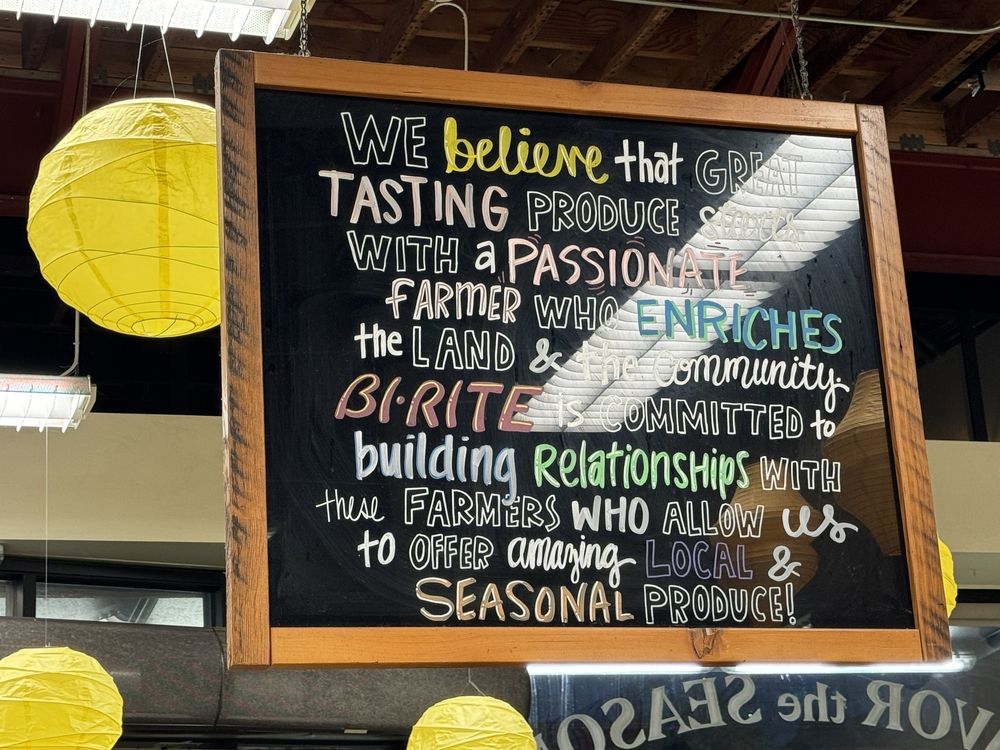 WE believe that GREAT
TASTING PRODUCE starts
WITH a PASSIONATE
FARMER WHO ENRICHES
the LAND & the Community.
BI·RITE is COMMITTED to
building Relationships WITH
these FARMERS WHO ALLOW us
to OFFER amazing LOCAL &
SEASONAL PRODUCE!
VOR the SEASO